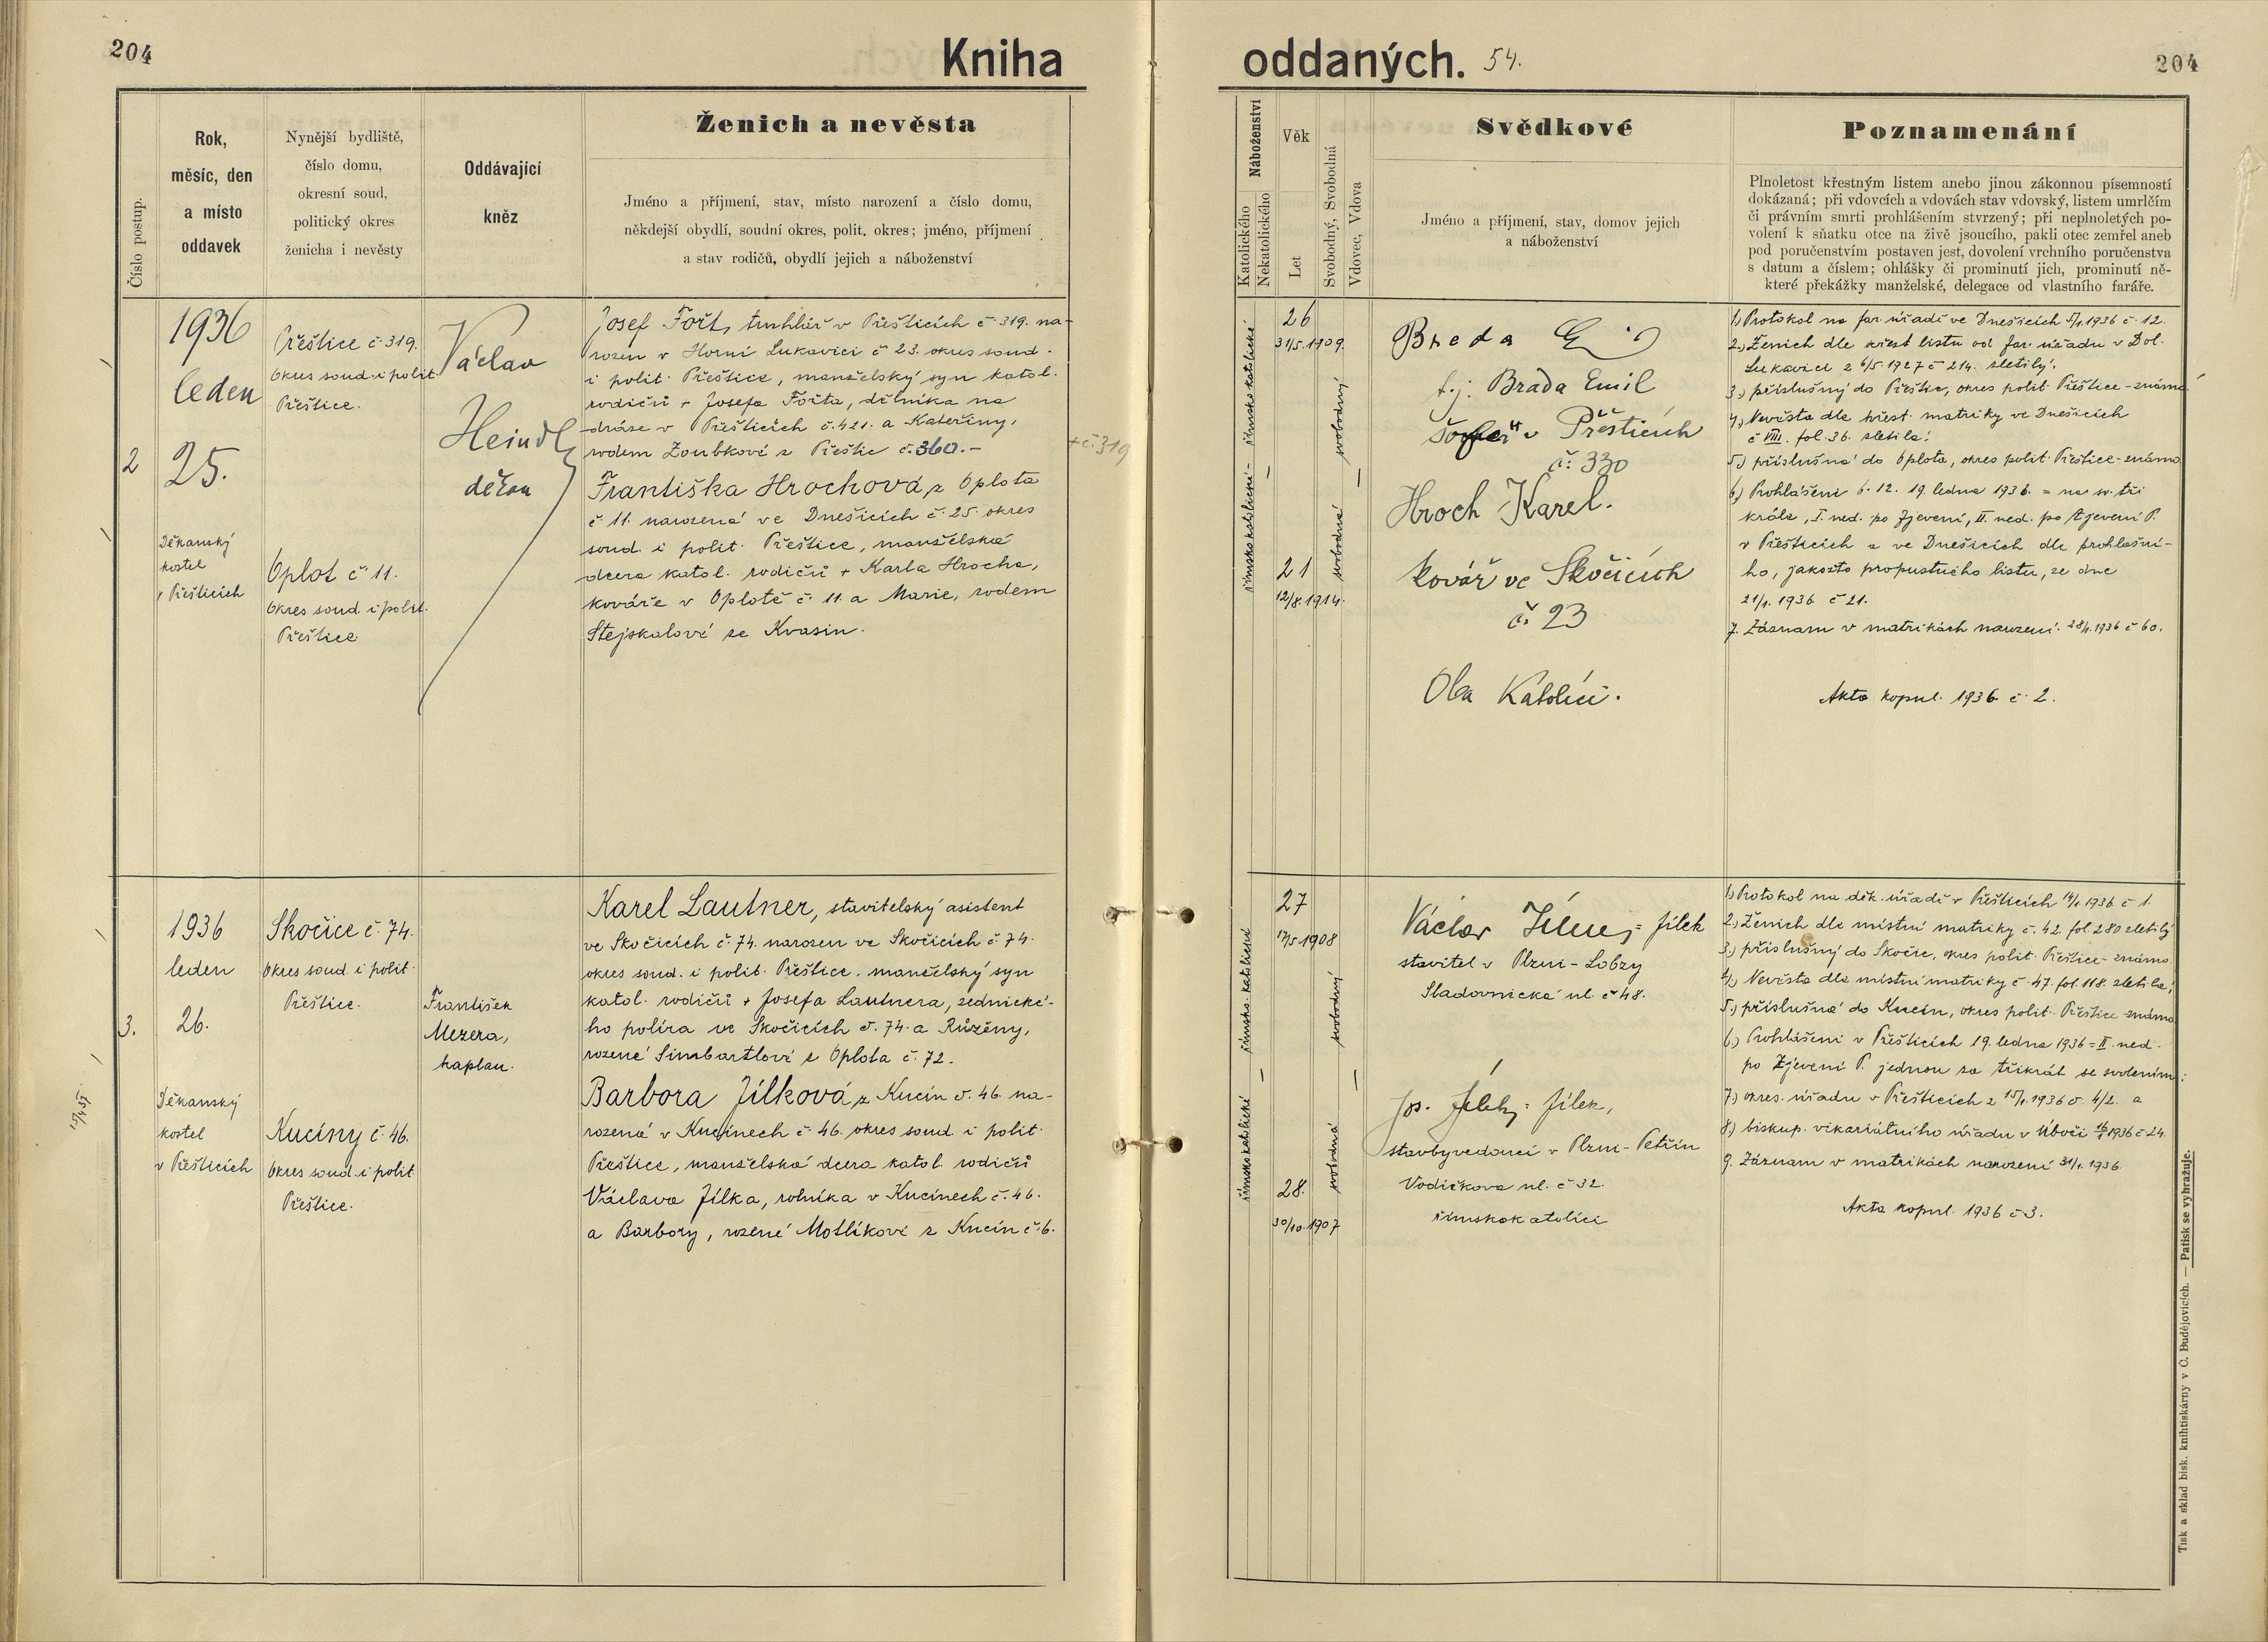 204
Kniha
oddaných. 54.
204
Číslo postup.
Rok,
měsíc, den
a místo
oddavek
Nynější bydliště,
číslo domu,
okresní soud,
politický okres
ženicha i nevěsty
Oddávající
kněz
Ženich a nevěsta
Jméno a příjmení, stav, místo narození a číslo domu,
někdejší obydlí, soudní okres, polit. okres; jméno, příjmení
a stav rodičů, obydlí jejich a náboženství
Náboženství
Katolického
Nekatolického
Věk
Let
Svobodný, Svobodná
Vdovec, Vdova
Svědkové
Jméno a příjmení, stav, domov jejich
a náboženství
Poznamenání
Plnoletost křestným listem anebo jinou zákonnou písemností
dokázaná; při vdovcích a vdovách stav vdovský, listem umrlčím
či právním smrti prohlášením stvrzený; při neplnoletých po-
volení k sňatku otce na živě jsoucího, pakli otec zemřel aneb
pod poručenstvím postaven jest, dovolení vrchního poručenstva
s datum a číslem; ohlášky či prominutí jich, prominutí ně-
které překážky manželské, delegace od vlastního faráře.
2
1936
leden
25.
Děkanský
kostel
v Přešticích
Přeštice č. 319.
Okres soud. i polit.
Přeštice.
Oplot č. 11.
Okres soud. i polit.
Přeštice
Václav
Heindl
děkan
Josef Fořt, truhlář v Přešticích č. 319. na-
rozen v Horní Lukavici č. 23. okres soud.
i polit. Přeštice, manželský syn katol.
rodičů + Josefa Fořta, dělníka na
dráze v Přešticích č. 421. a Kateřiny,
rodem Zoubkové z Přeštic č. 360. -
+ č. 319
Františka Hrochová, z Oplota
č. 11. narozená ve Dnešicích č. 25. okres
soud. i polit. Přeštice, manželská
dcera katol. rodičů + Karla Hrocha,
kováře v Oplotě č. 11. a Marie, rodem
Stejskalové ze Kvasin.
římsko katolické - římsko katolické
26
31/5. 1909.
21
12/8. 1914.
svobodný
svobodná
Breda E
t. j. Brada Emil
šofer v Přešticích
č. 330
Hroch Karel.
kovář ve Skočicích
č. 23
Oba Katolíci.
1.) Protokol na far. úřadě ve Dnešicích 5/1. 1936 č. 12.
2.) Ženich dle křest. listu od far. úřadu v Dol.
Lukavici z 6/5 1927 č. 214. zletilý.
3.) příslušný do Přeštic, okres polit. Přeštice - známo
4.) Nevěsta dle křest. matriky ve Dnešicích
č. VIII. fol. 36. zletilá.
5.) příslušná do Oplota, okres polit. Přeštice - známo
6.) Prohlášeni 6. 12. 19. ledna 1936. = na sv. tři
krále, I. ned. po Zjevení, II. ned. po Zjevení P.
v Přešticích a ve Dnešicích dle prohlášní-
ho, jakožto propustného listu, ze dne
21/1. 1936. č. 21.
7. Záznam v matrikách narození. 28/1. 1936 č. 60.
Akta kopul. 1936 č. 2.
3.
1936
leden
26.
Děkanský
kostel
v Přešticích
Skočice č. 74.
Okres soud. i polit.
Přeštice.
Kucíny č. 46.
Okres soud. i polit
Přeštice.
František
Mezera,
kaplan.
Karel Lautner, stavitelský asistent
ve Skočicích č. 74. narozen ve Skočicích č. 74.
okres soud. i polit. Přeštice. manželský syn
katol. rodičů + Josefa Lautnera, zednické-
ho políra ve Skočicích č. 74. a Růženy,
rozené Simbartlové z Oplota č. 72.
Barbora Jílková, z Kucín č. 46. na-
rozená v Kucínech č. 46. okres soud. i polit.
Přeštice, manželská dcera katol. rodičů
Václava Jílka, rolníka v Kucínech č. 46.
a Barbory, rozené Motlíkové z Kucín č. 6.
římsko katolické
římsko. katolické
27
17/5. 1908
28.
30/10. 1907
svobodný
svobodná
Václav Jílek = Jílek
stavitel v Plzni - Lobzy
Sladovnická ul. č. 48.
Jos. Jílek = Jílek,
stavbyvedoucí v Plzni - Petřín
Vodičkova ul. č. 32.
římskokatolíci
1.) Protokol na děk. úřadě v Přešticích 14/1. 1936 č. 1.
2.) Ženich dle místní matriky č. 42. fol. 280 zletilý
3.) příslušný do Skočic, okres polit. Přeštice - známo
4.) Nevěsta dle místní matriky č. 47. fol. 118. zletilá;
5.) příslušná do Kucín, okres polit. Přeštice - známo
6.) Prohlášeni v Přešticích 19. ledna 1936 = II. ned.
po Zjevení P. jednou za třikrát se svolením:
7.) okres. úřadu v Přešticích z 15/1. 1936 č. 4/2. a
8.) biskup. vikariátního úřadu v Úboči 16/1 1936 č. 24.
9. Záznam v matrikách narození 31/1. 1936.
Akta kopul. 1936 č. 3.
Tisk a sklad bisk. knihtiskárny v Č. Budějovicích. — Patisk se vyhražuje.